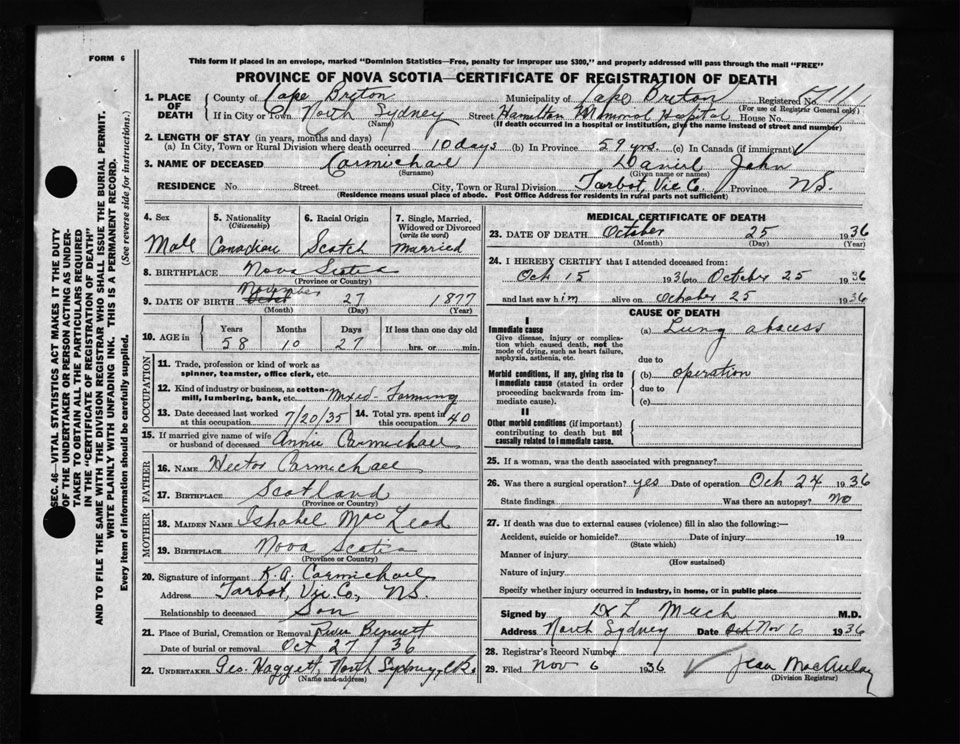 FORM 6
This form if placed in an envelope, marked "Dominion Statistics—Free, penalty for improper use $300," and properly addressed will pass through the mail "FREE"
PROVINCE OF NOVA SCOTIA—CERTIFICATE OF REGISTRATION OF DEATH
SEC. 46—VITAL STATISTICS ACT MAKES IT THE DUTY
OF THE UNDERTAKER OR PERSON ACTING AS UNDER-
TAKER TO OBTAIN ALL THE PARTICULARS REQUIRED
IN THE "CERTIFICATE OF REGISTRATION OF DEATH"
AND TO FILE THE SAME WITH THE DIVISION REGISTRAR WHO SHALL ISSUE THE BURIAL PERMIT.
WRITE PLAINLY WITH UNFADING INK. THIS IS A PERMANENT RECORD.
Every item of information should be carefully supplied. (See reverse side for instructions.)
1. PLACE OF DEATH County of Cape Breton Municipality of Cape Breton Registered No.
(For use of Registrar General only)
If in City or Town North Sydney Street Hamilton Memorial Hospital House No.
(Name) (If death occurred in a hospital or institution, give the name instead of street and number)
2. LENGTH OF STAY (in years, months and days)
(a) In City, Town or Rural Division where death occurred 10 days (b) In Province 59 yrs. (c) In Canada (if immigrant)
3. NAME OF DECEASED Carmichael Daniel John
(Surname) (Given name or names)
RESIDENCE No. Street City, Town or Rural Division Tarbot, Vic Co. Province N.S.
(Residence means usual place of abode. Post Office Address for residents in rural parts not sufficient)
4. Sex 5. Nationality (Citizenship) 6. Racial Origin 7. Single, Married, Widowed or Divorced (write the word)
Male Canadian Scotch Married
8. BIRTHPLACE Nova Scotia
(Province or Country)
9. DATE OF BIRTH November 27 1877
(Month) (Day) (Year)
10. AGE in Years Months Days If less than one day old
58 10 27 hrs. or min.
OCCUPATION
11. Trade, profession or kind of work as
spinner, teamster, office clerk, etc.
12. Kind of industry or business, as cotton-
mill, lumbering, bank, etc. Mixed Farming
13. Date deceased last worked at this occupation 7/20/35 14. Total yrs. spent in this occupation 40
15. If married give name of wife or husband of deceased Annie Carmichael
FATHER
16. NAME Hector Carmichael
17. BIRTHPLACE Scotland
(Province or Country)
MOTHER
18. MAIDEN NAME Ishabel MacLeod
19. BIRTHPLACE Nova Scotia
(Province or Country)
20. Signature of informant K. A. Carmichael
Address Tarbot, Vic Co., N.S.
Relationship to deceased Son
21. Place of Burial, Cremation or Removal River Bennett
Date of burial or removal Oct 27 / 36
22. UNDERTAKER Geo. Haggett, North Sydney,
(Name and address)
MEDICAL CERTIFICATE OF DEATH
23. DATE OF DEATH October 25 1936
(Month) (Day) (Year)
24. I HEREBY CERTIFY that I attended deceased from:
Oct 15 1936 to October 25 1936
and last saw him alive on October 25 1936
CAUSE OF DEATH
I
Immediate cause
Give disease, injury or complica-
tion which caused death, not the
mode of dying, such as heart failure,
asphyxia, asthenia, etc.
(a) Lung abscess
due to
Morbid conditions, if any, giving rise to
immediate cause (stated in order
proceeding backwards from im-
mediate cause).
(b) operation
due to
(c)
II
Other morbid conditions (if important)
contributing to death but not
causally related to immediate cause.
25. If a woman, was the death associated with pregnancy?
26. Was there a surgical operation? yes Date of operation Oct 24 1936
State findings Was there an autopsy? no
27. If death was due to external causes (violence) fill in also the following:—
Accident, suicide or homicide? Date of injury 19
(State which)
Manner of injury
(How sustained)
Nature of injury
Specify whether injury occurred in industry, in home, or in public place
Signed by L Meech M.D.
Address North Sydney Date Nov 6 1936
28. Registrar's Record Number
29. Filed Nov 6 1936 Jean MacAulay
(Division Registrar)